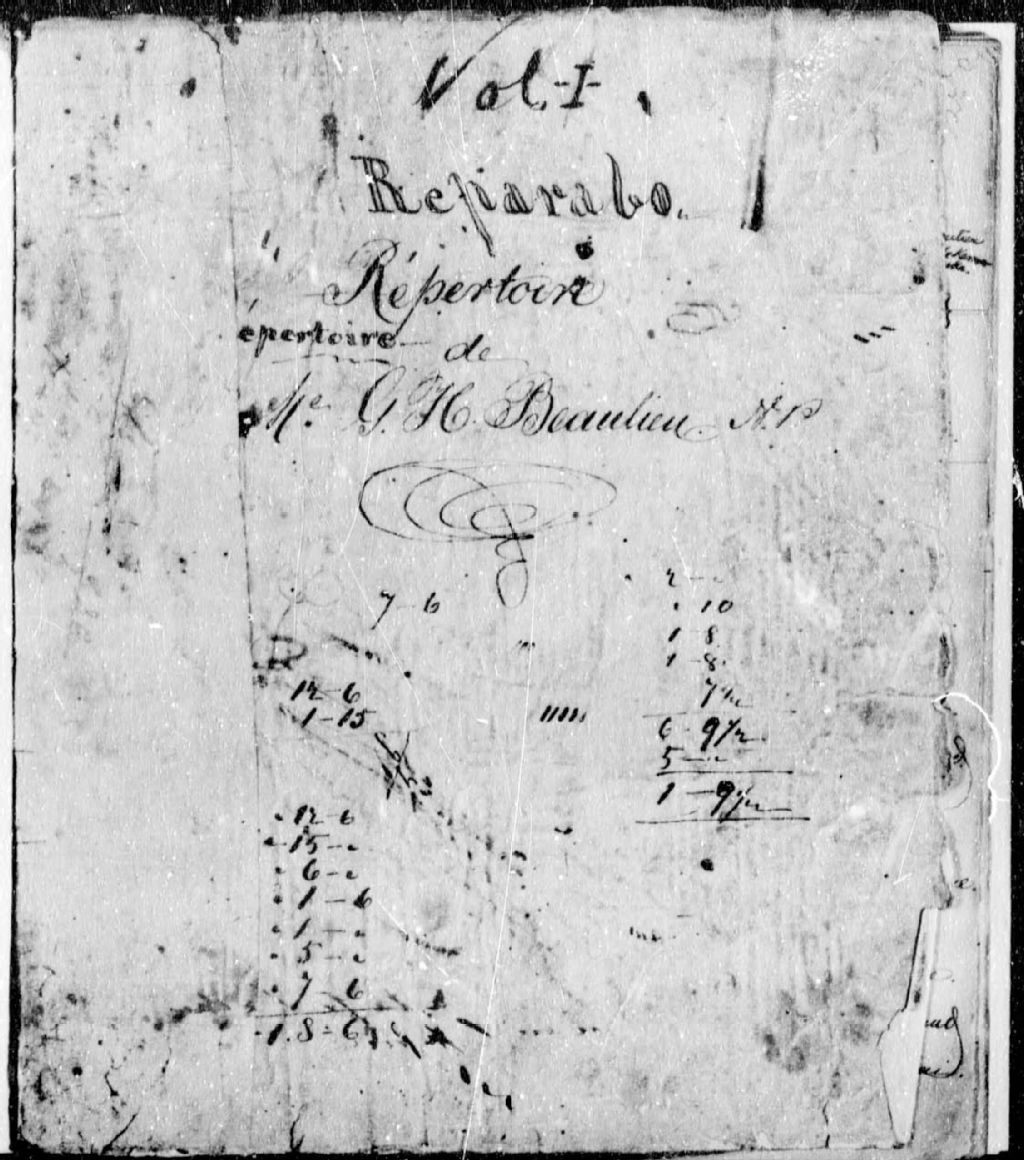 Vol. I.
Reparabo.
Répertoire
épertoire
de
Me. G. H. Beaulieu N.P
7-6
10
1-8
1-8
7½
6-9½
5-"
1-9½
12-6
1-15
12-6
15-"
6-"
1-6
1-"
5-"
7-6